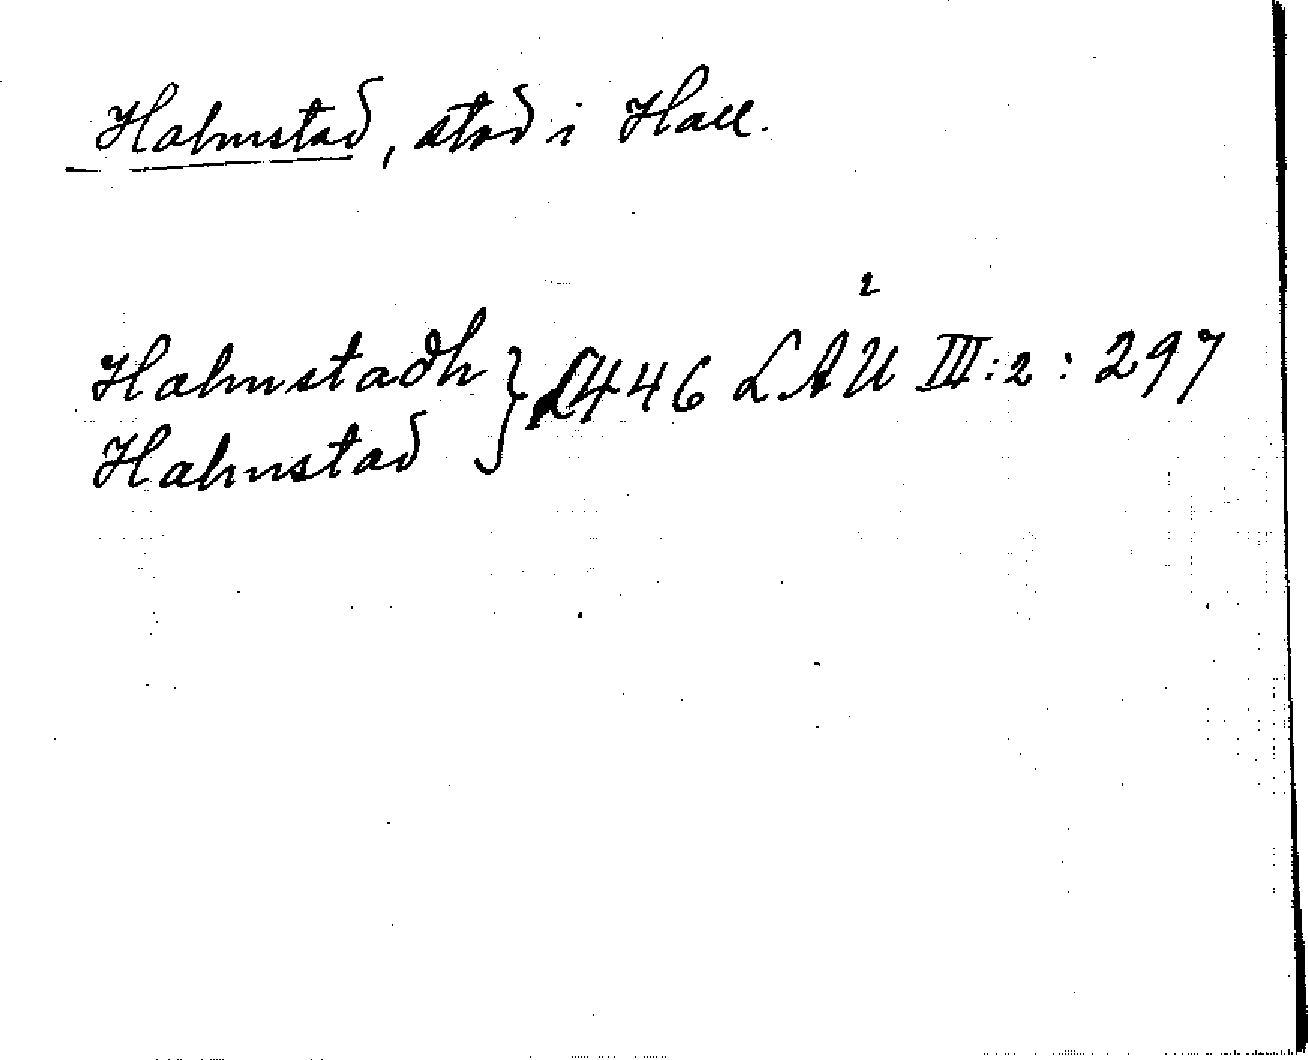 Halmstad, stad i Hall.
2
Halmstadh } 1446 LÄU III:2:297
Halmstad